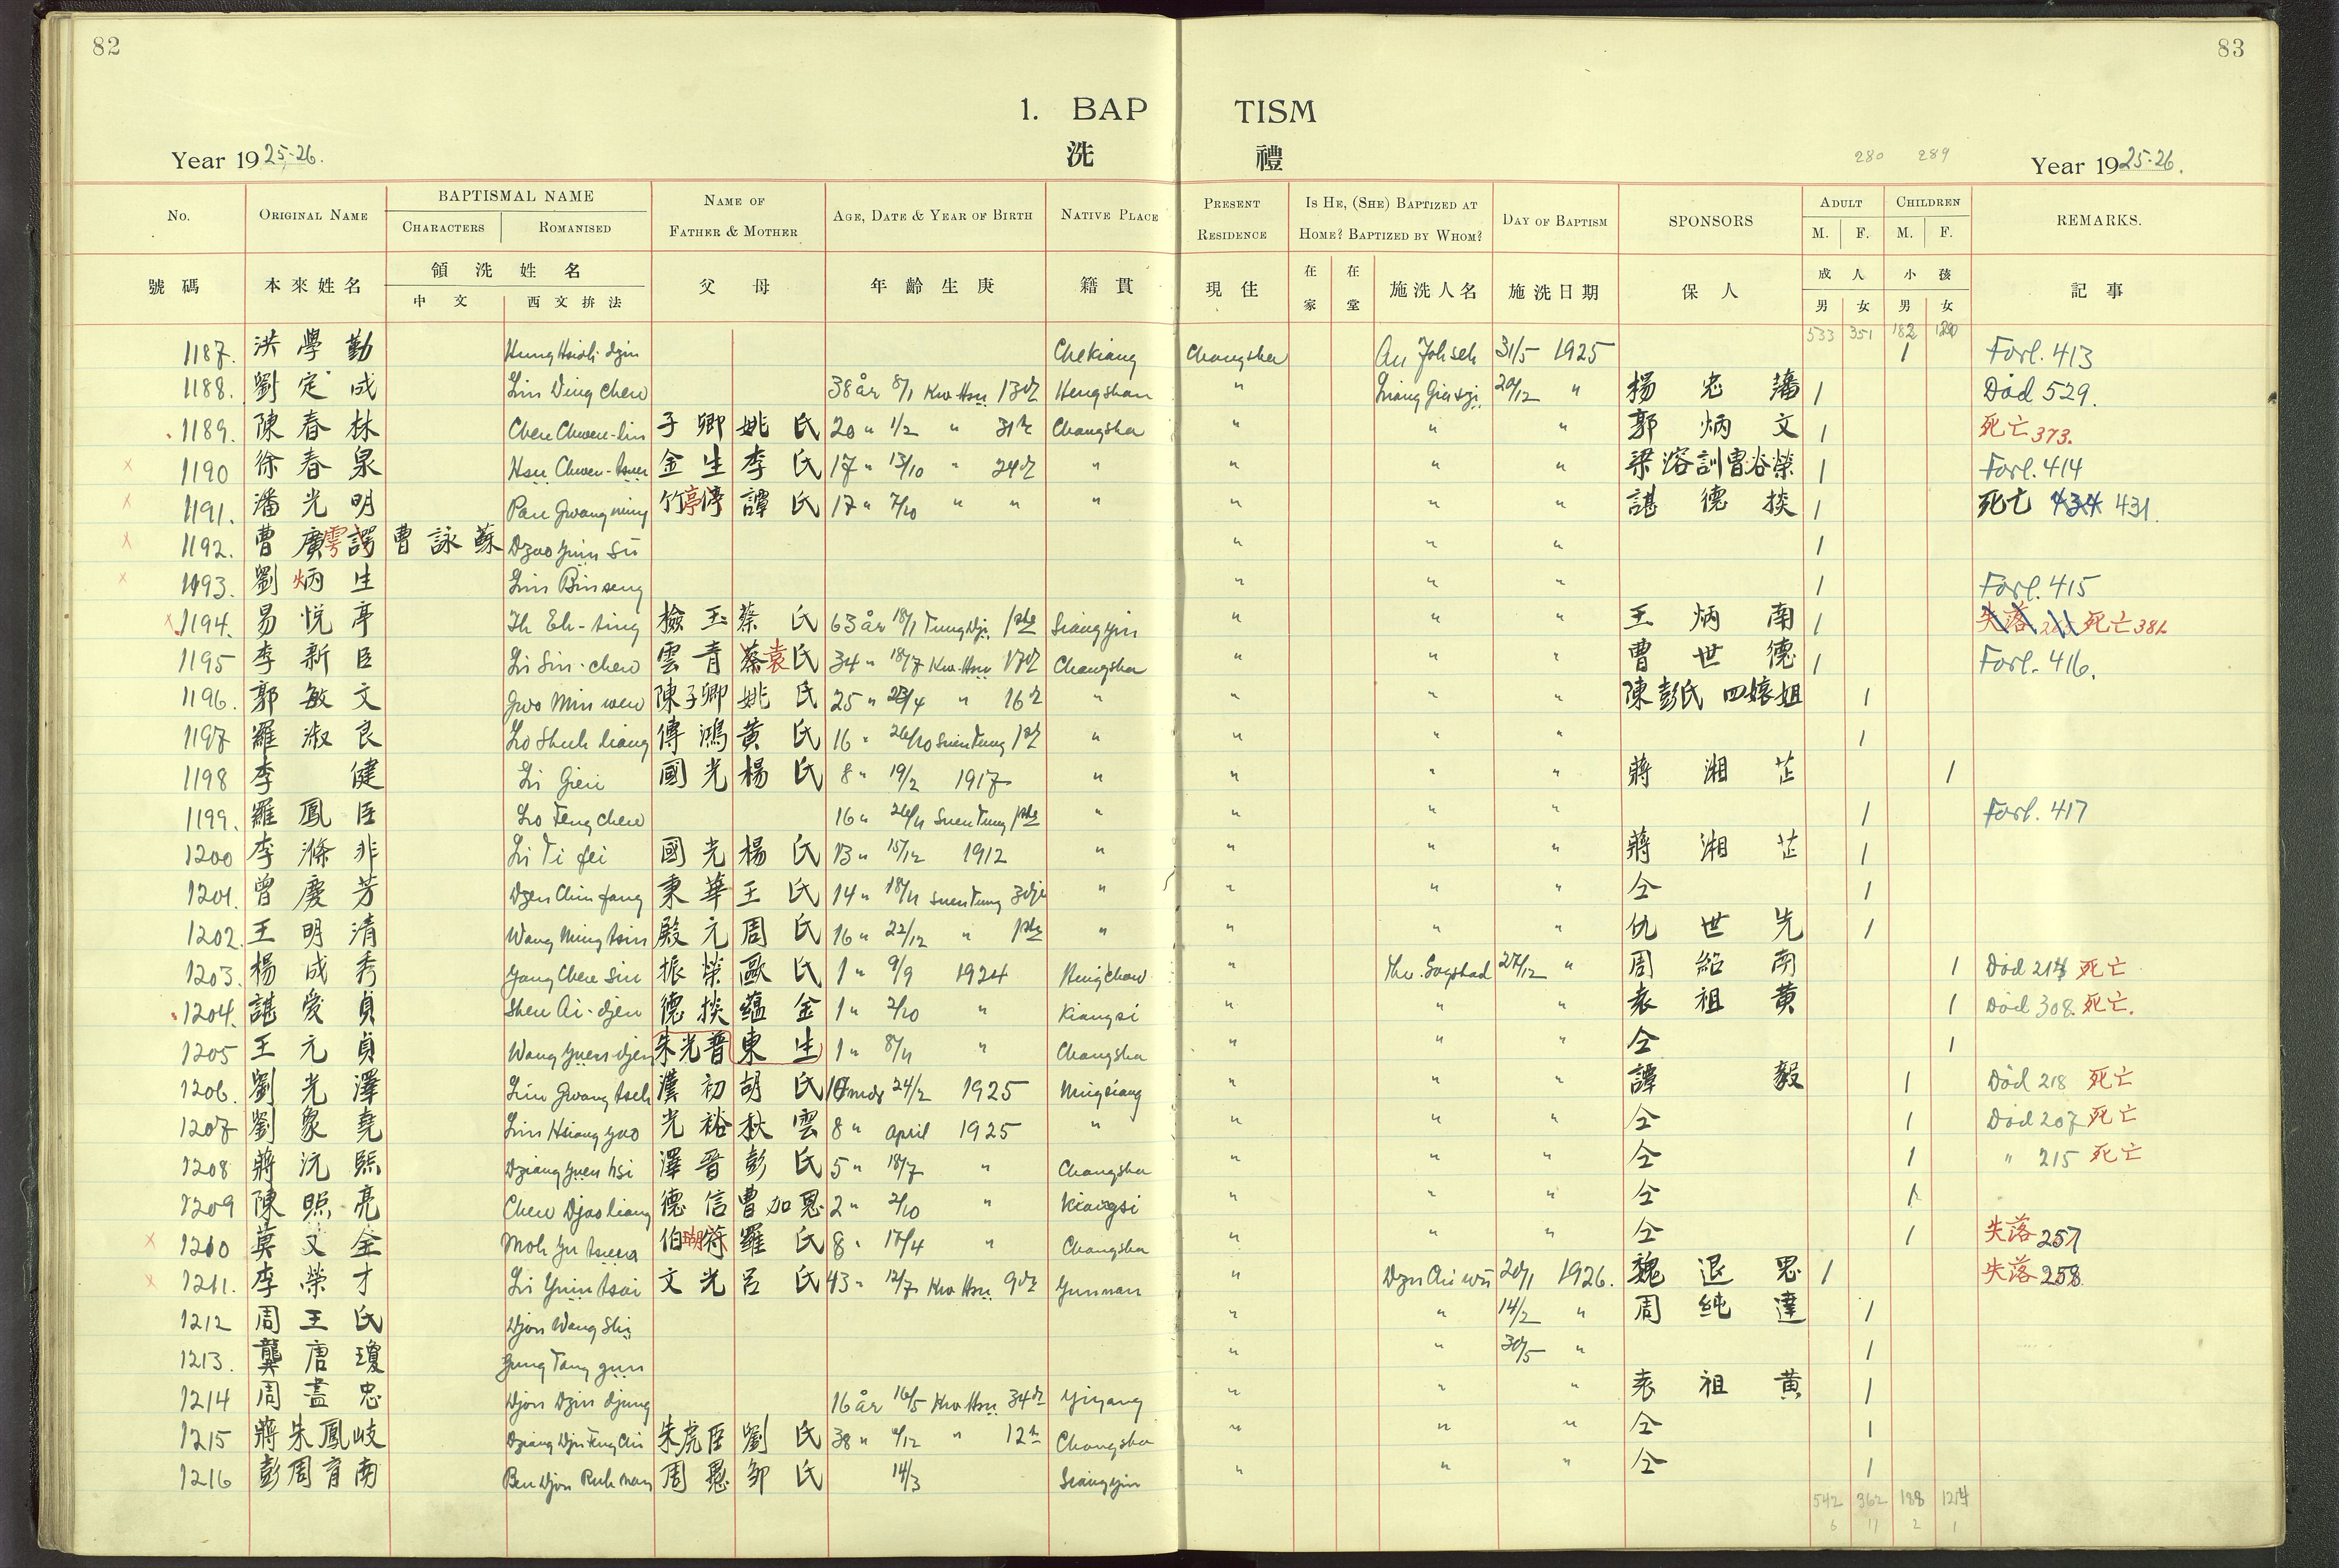 82
83
1. BAP TISM
洗 禮
Year 1925-26.
280 289
Year 1925-26.
No. ORIGINAL NAME BAPTISMAL NAME CHARACTERS ROMANISED NAME OF FATHER & MOTHER AGE, DATE & YEAR OF BIRTH NATIVE PLACE PRESENT RESIDENCE IS HE, (SHE) BAPTIZED AT HOME? BAPTIZED BY WHOM? DAY OF BAPTISM SPONSORS ADULT M. F. CHILDREN M. F. REMARKS.
號碼 本來姓名 領洗姓名 中文 西文拚法 父母 年齡生庚 籍貫 現住 在家 在堂 施洗人名 施洗日期 保人 成人 男 女 小孩 男 女 記事
533 351 182
1187. 洪學勤 Hung Hsioh dzin Chekiang Changsha 31/5 1925 1 Forl. 413
1188. 劉定成 Liu Ding chen 38 år 8/1 Kwa Hsu 13de Hengshan " 20/12 " 楊忠藩 1 Död 529.
1189. 陳春林 Chen Chwen-lin 子卿 姚氏 20 " 1/2 " 31te Changsha " " " 郭炳文 1 死亡 373.
1190 徐春泉 Hsu Chwen-tsuen 金生 李氏 17 " 13/10 " 24de " " " " 梁溶訓曹谷榮 1 Forl. 414
1191. 潘光明 Pan Gwang ming 竹亭 譚氏 17 " 7/10 " " " " " " 諶德掞 1 死亡 434 431.
1192. 曹廣雩 曹詠蘇 Dzao Yuin Sü " " " 1
1193. 劉炳生 Liu Bin seng " " " 1 Forl. 415
1194. 易悅亭 Ih Eh-ting 檢玉 蔡氏 63 år 18/1 Tung Dji 1ste Siangyin " " " 王炳南 1 失落 死亡 381
1195 李新臣 Li Sin-chen 雲青 蔡袁氏 34 " 18/7 Kwa-Hsu 17de Changsha " " " 曹世德 1 Forl. 416.
1196. 郭敏文 Gwo Min wen 陳子卿 姚氏 25 " 23/4 " 16de " " " " 陳彭氏 四娭姐 1
1197 羅淑良 Lo Shuh liang 傳鴻 黃氏 16 " 26/10 Suen Tung 1ste " " " " 1
1198 李健 Li Gien 國光 楊氏 8 " 19/2 1917 " " " " 蔣湘芷 1
1199. 羅鳳臣 Lo Feng chen 16 " 26/11 Suen Tung 1ste " " " " 1 Forl. 417
1200 李滌非 Li Ti fei 國光 楊氏 13 " 15/12 1912 " " " " 蔣湘芷 1
1201. 曾慶芳 Dzen Chin fang 秉華 王氏 14 " 18/11 Suen Tung 3dje " " " " 仝 1
1202. 王明清 Wang Ming tsin 殿元 周氏 16 " 22/12 " 1ste " " " " 仇世先 1
1203. 楊成秀 Yang Chen siu 振榮 歐氏 1 " 9/9 1924 Hengchow " 27/12 " 周紹南 1 Död 214 死亡
1204. 諶愛貞 Shen Ai-djen 德掞 蘊金 1 " 2/10 " Kiangsi " " " 袁祖黃 1 Död 308. 死亡.
1205 王元貞 Wang Yuen djen 朱光晉 東生 1 " 8/11 " Changsha " " " 仝 1
1206. 劉光澤 Liu Gwang tseh 漢初 胡氏 10 mdr 24/2 1925 Ningsiang " " " 譚毅 1 Död 218 死亡
1207 劉象堯 Liu Hsiang yao 光裕 秋雲 8 " April 1925 " " " " 仝 1 Död 207 死亡
1208 蔣沅熙 Dziang Yuen hsi 澤晉 彭氏 5 " 18/7 " Changsha " " " 仝 1 " 215 死亡
1209 陳照亮 Chen Djao liang 德信 曹加恩 2 " 2/10 " Kiangsi " " " 仝 1
1210 莫文全 伯瑚 羅氏 8 " 17/4 " Changsha " " " 仝 1 失落 257
1211. 李榮才 Li Yuin tsai 文光 呂氏 43 " 12/7 Kwa Hsu 9de Yunnan " 20/1 1926. 魏退思 1 失落 258.
1212 周王氏 Djou Wang Shi " " 14/2 " 周純達 1
1213. 龔唐瓊 Gung Tang " " 30/5 " 1
1214 周盡忠 Djou Dzin djung 16 år 16/5 Kwa Hsu 34de Yiyang " " " 袁祖黃 1
1215 蔣朱鳳岐 Dziang Dju Feng Chi 朱虎臣 劉氏 38 " " 12te Changsha " " " 仝 1
1216 彭周育南 周 鄒氏 14/3 Siangyin " " " 仝 1
542 362 188
6 11 2 1